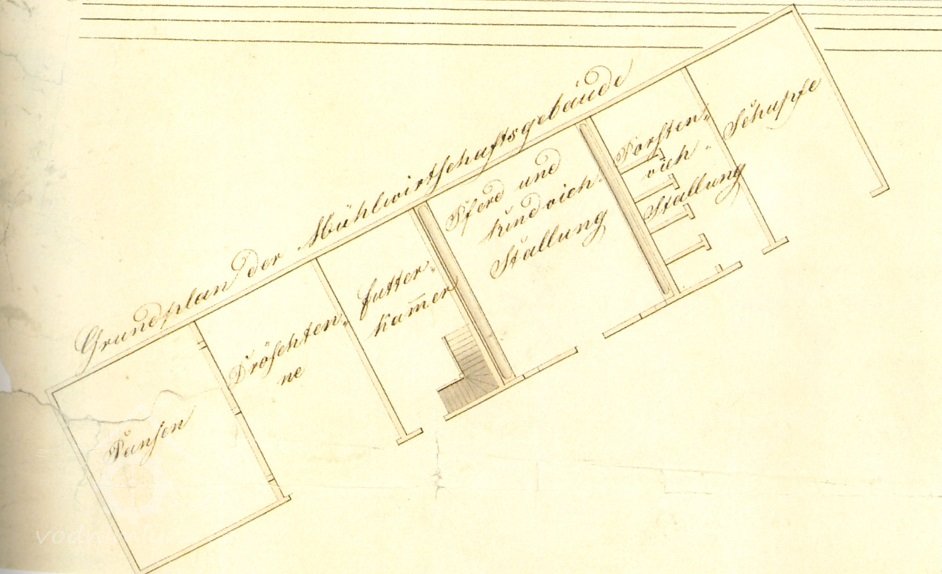 Grundplan der Mühlwirtschaftsgebäude
Pansen
Dröschten-
ne
Futter-
kam̅er
Pferd und
Rindvieh-
Stallung
Borsten-
vieh-
Stallung
Schupfe